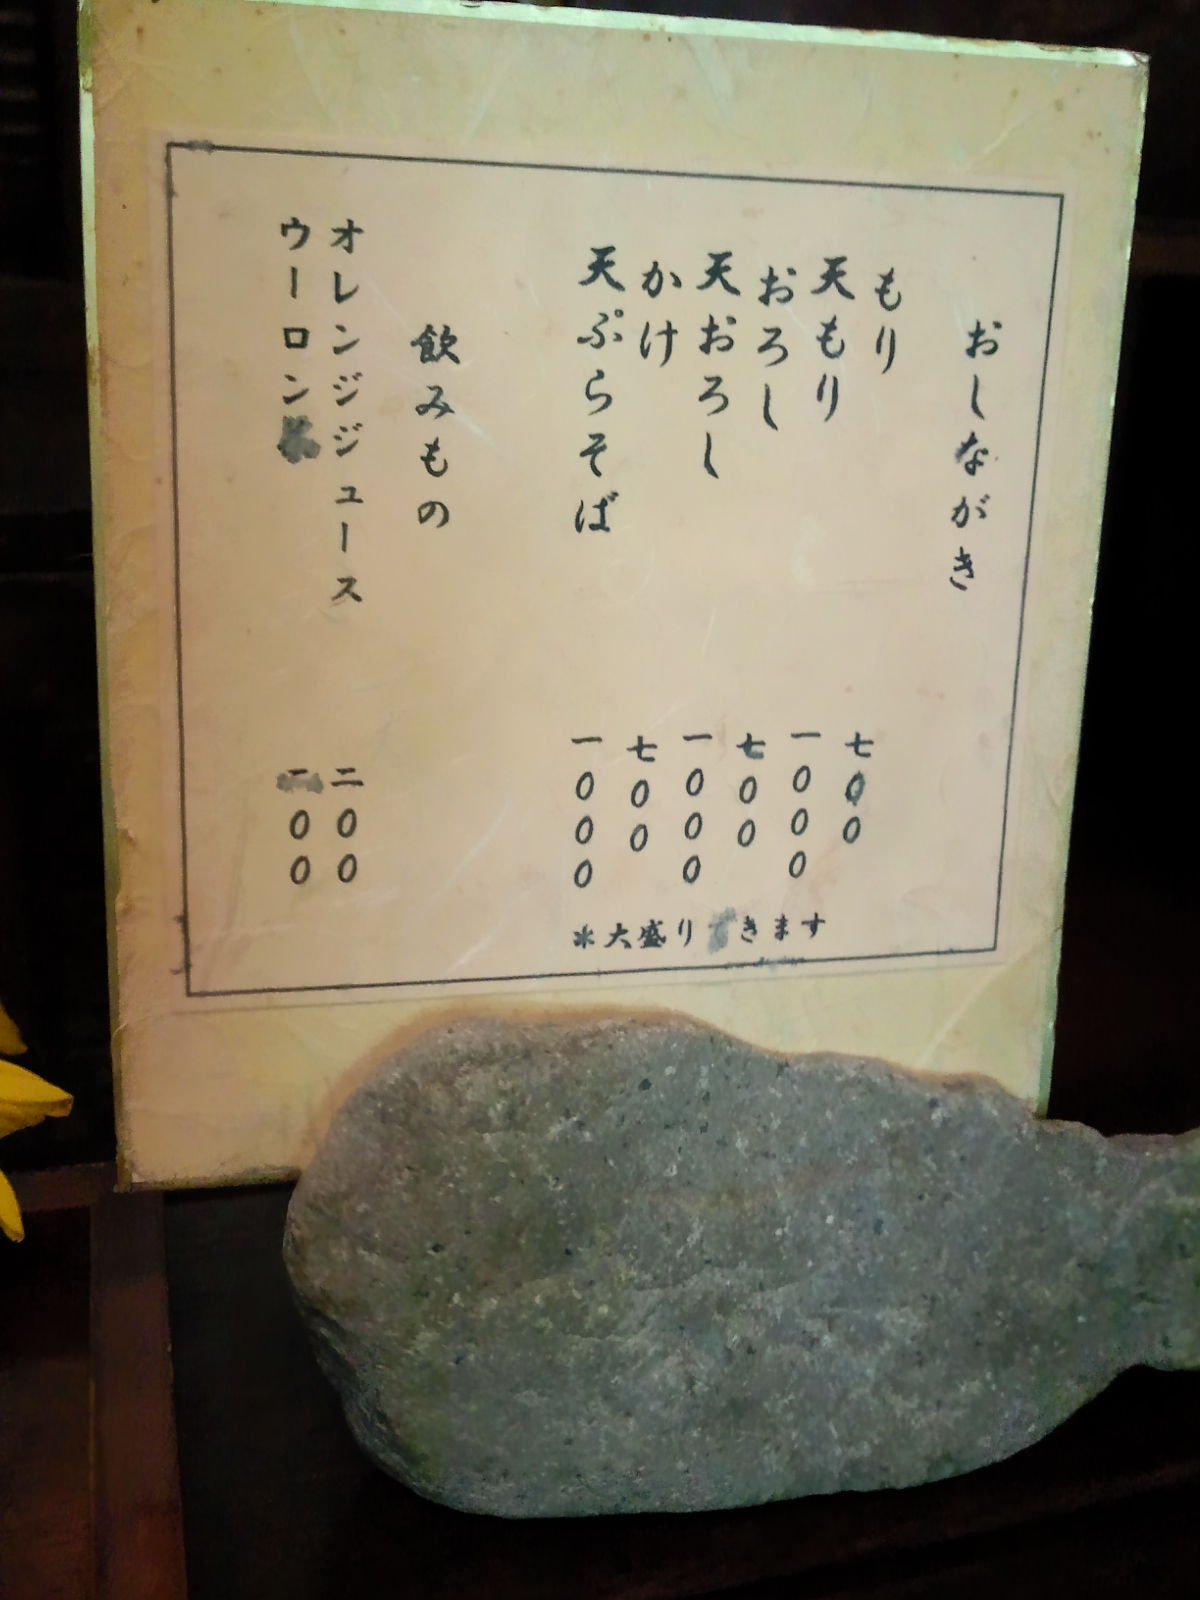 おしながき
もり 七〇〇
天もり 一〇〇〇
おろし 七〇〇
天おろし 一〇〇〇
かけ 七〇〇
天ぷらそば 一〇〇〇
＊大盛りできます
飲みもの
オレンジジュース 二〇〇
ウーロン 〇〇